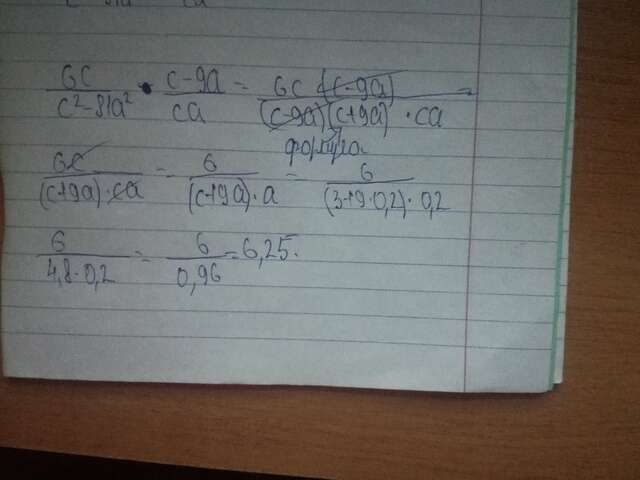 6c/(c²-81a²) · (c-9a)/ca = 6c(c-9a)/((c-9a)(c+9a)·ca) =
формула
6c/((c+9a)·ca) = 6/((c+9a)·a) = 6/((3+9·0,2)·0,2)
6/(4,8·0,2) = 6/0,96 = 6,25.